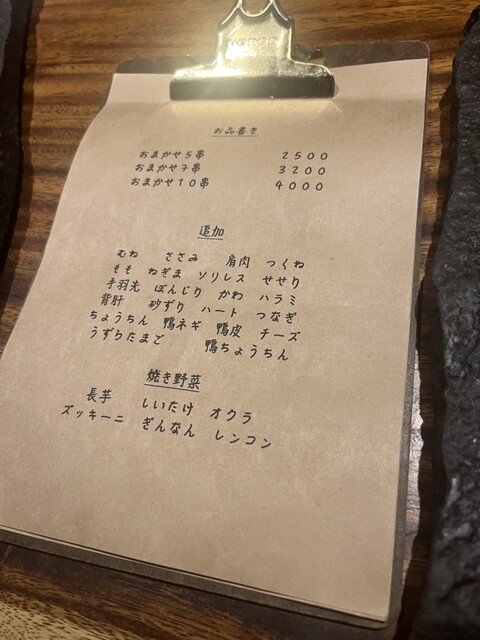 お品書き
おまかせ5串 2500
おまかせ7串 3200
おまかせ10串 4000
追加
むね ささみ 肩肉 つくね
もも ねぎま ソリレス せせり
手羽先 ぼんじり かわ ハラミ
背肝 砂ずり ハート つなぎ
ちょうちん 鴨ネギ 鴨皮 チーズ
うずらたまご 鴨ちょうちん
焼き野菜
長芋 しいたけ オクラ
ズッキーニ ぎんなん レンコン